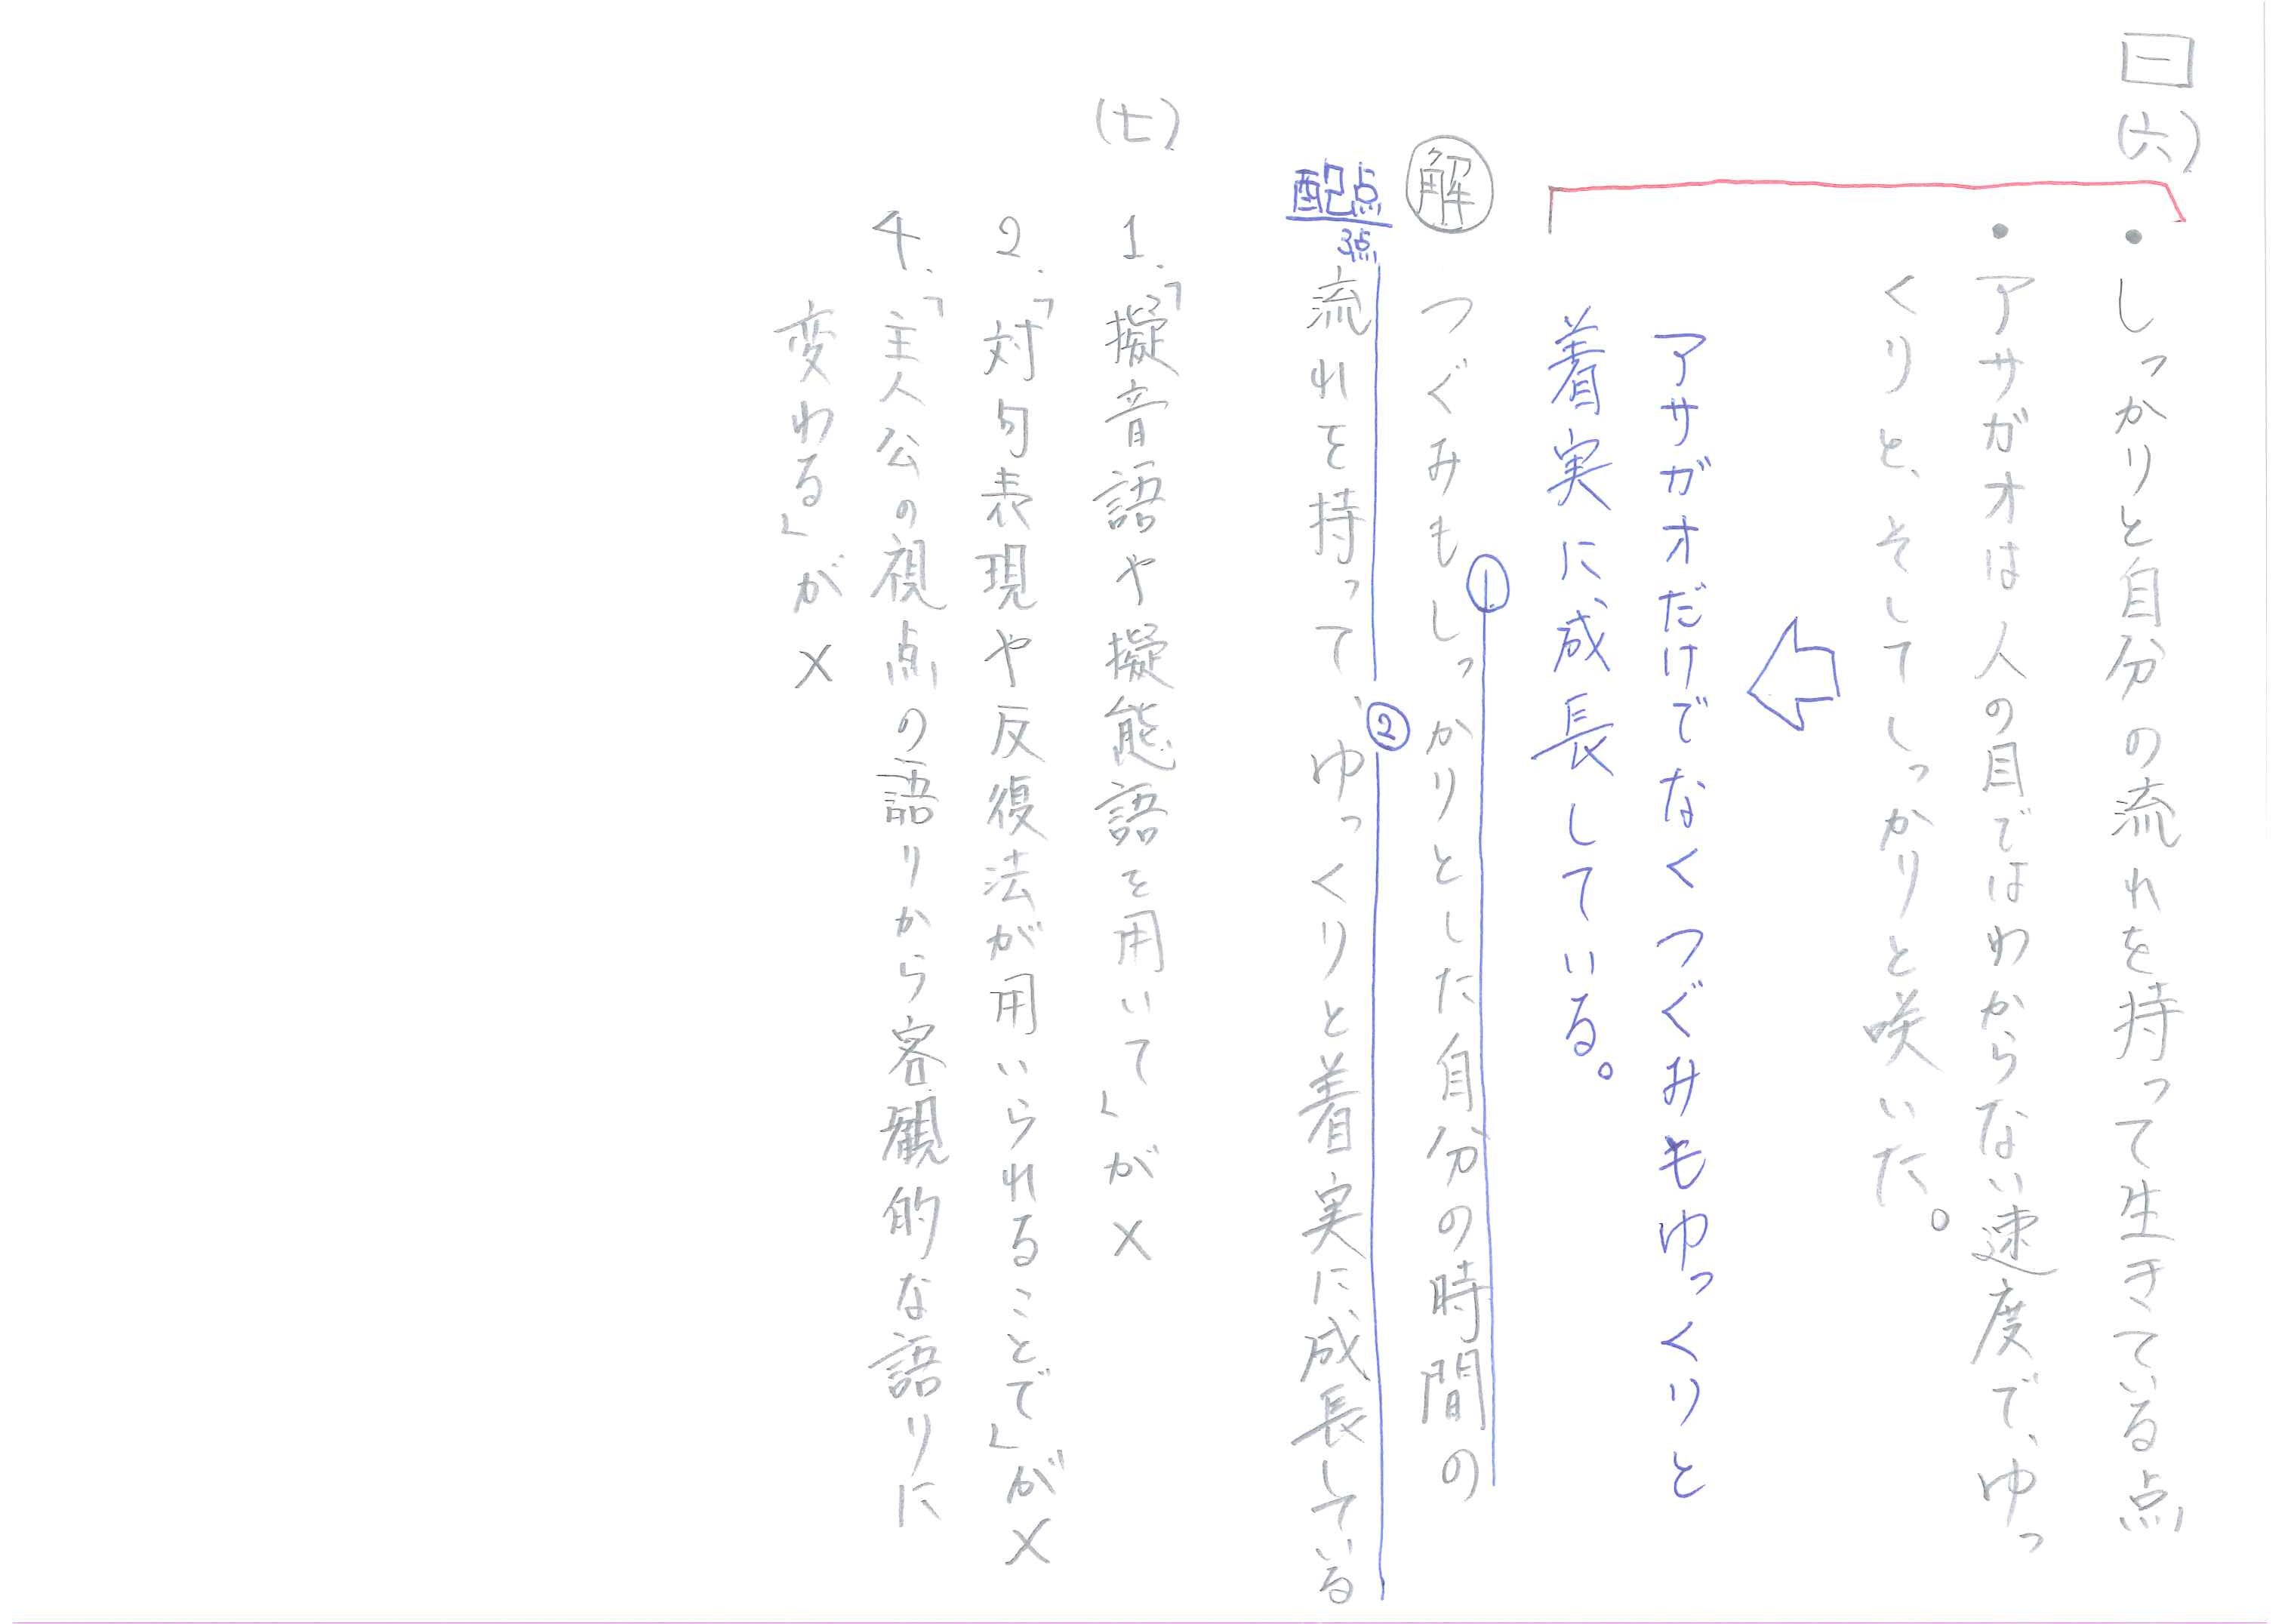 二 (六)
・しっかりと自分の流れを持って生きている点
・アサガオは人の目ではわからない速度で、ゆっ
くりと、そしてしっかりと咲いた。
アサガオだけでなくつぐみもゆっくりと
着実に成長している。
解 つぐみもしっかりとした自分の時間の
①
配点
3点
流れを持って、ゆっくりと着実に成長している
②
(七)
1.「擬音語や擬態語を用いて」が×
2.「対句表現や反復法が用いられることで」が×
4.「主人公の視点の語りから客観的な語りに
変わる」が×